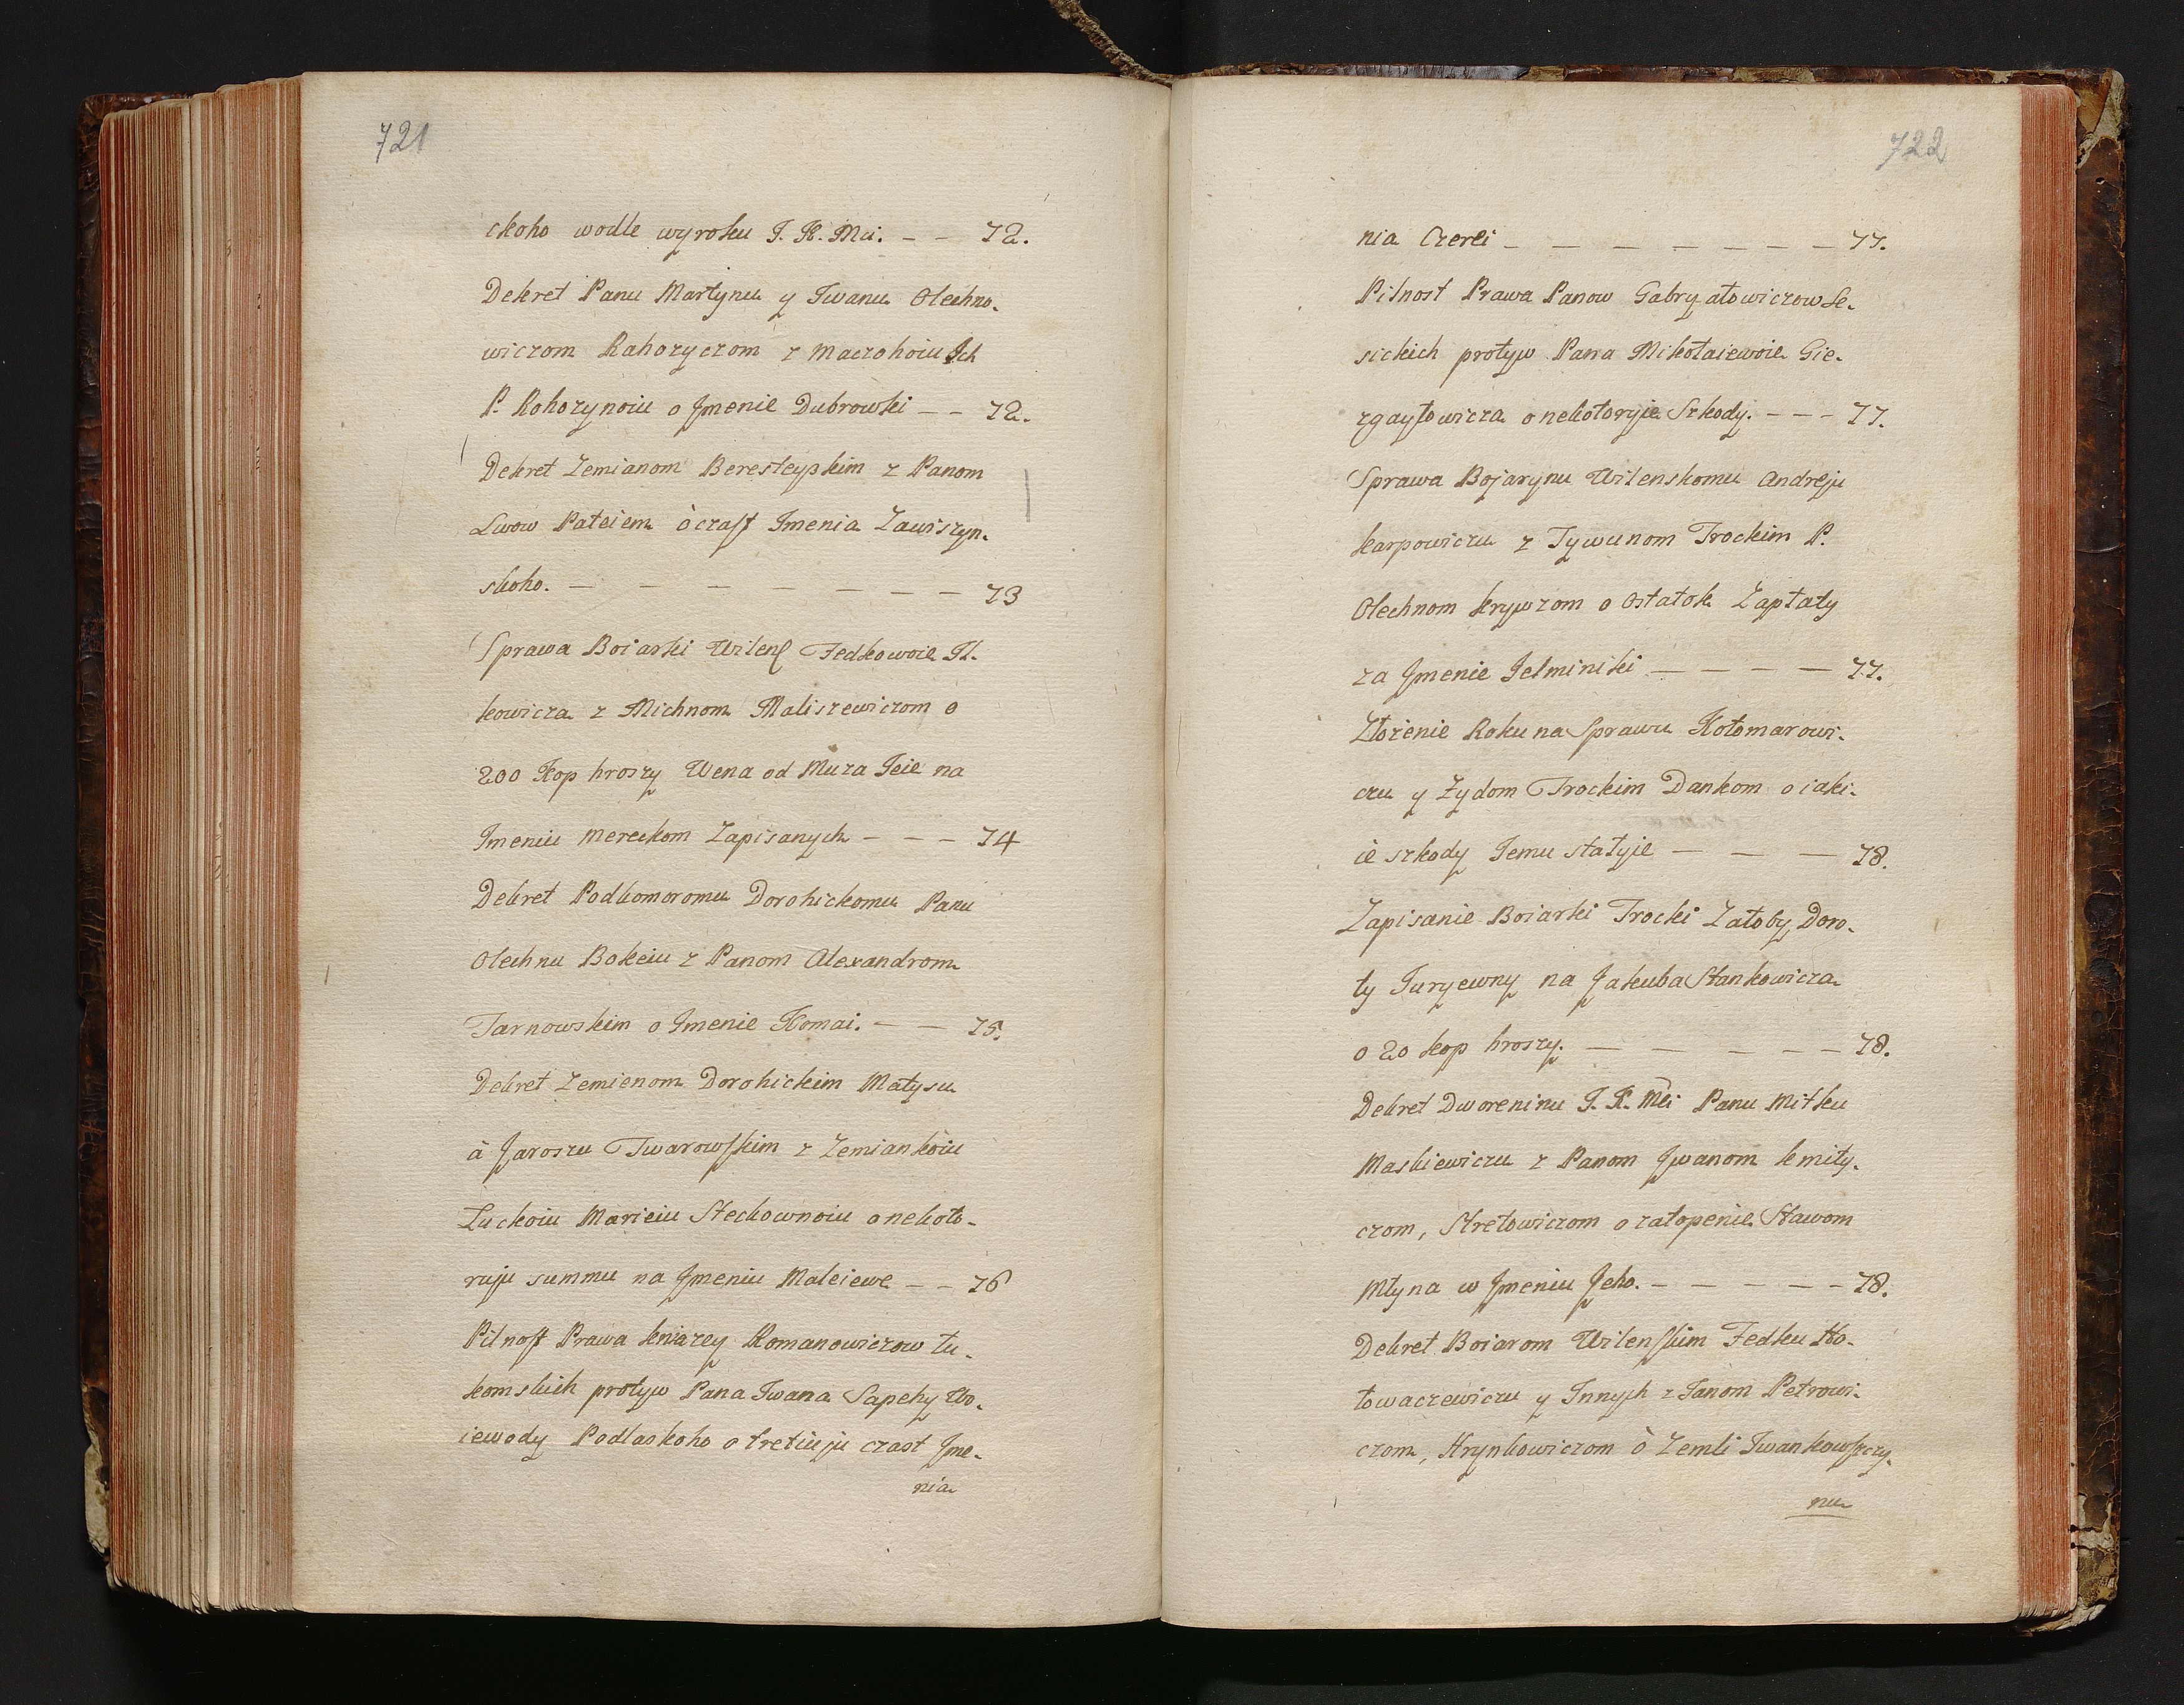 721
ckoho wodle wyroku J. K. Mci. – – 72.
Dekret Panu Martynu y Iwanu Olechno-
wiczom Rahozyczom z Maczohoiu Ich
P. Rohozynoiu o Jmenie Dubrowki – – 72.
Dekret Zemianom Beresteyskim z Panom
Lwow Pateiem ò czast Imenia Zawiszyn-
skoho. – – – – – – – 73
Sprawa Boiarki Wilens Fedkowoie Il-
kowicza z Michnom Maliszewiczom o
200 Kop hroszy Wena od Muza Jeie na
Imeniu Mereckom Zapisanych – – – 74
Dekret Podkomoromu Dorohickomu Panu
Olechnu Bokeiu z Panom Alexandrom
Tarnowskim o Imenie Komai. – – 75.
Dekret Zemienom Dorohickim Matysu
à Jaroszu Twarowskim z Zemiankoiu
Łuckoiu Marieiu Steckownoiu o nekoto-
ruju summu na Jmeniu Maleiewe – – 76
Pilnost Prawa kniazey Romanowiczow Łu-
komskich protyw Pana Iwana Sapehy Wo-
iewody Podlaskoho o tretiuju czast Jme-
nia
722
nia Czerei – – – – – – – 77.
Pilnost Prawa Panow Gabryałowiczow Se-
sickich protyw Pana Mikołaiewoie Gie-
zgayłowicza o nekotoryje Szkody. – – – 77.
Sprawa Bojarynu Wilenskomu Andreju
Karpowiczu z Tywunom Trockim P.
Olechnom Krywzom o Ostatok Zapłaty
za Jmenie Jelminiki – – – – 77.
Złożenie Roku na Sprawu Kołomarowi-
czu y Żydom Trockim Dankom o iaki-
ie szkody Jemu stałyie – – – 78.
Zapisanie Boiarki Trocki Załoby Doro-
ty Juryewny na Jakuba Stankowicza
o 20 kop hroszy. – – – – – 78.
Dekret Dworeninu J. K. Mci Panu Mitku
Maskiewiczu z Panom Jwanom Kmity-
czom, Stretowiczom o zatopenie Stawom
Młyna w Jmeniu Jeho. – – – – – 78.
Dekret Boiarom Wilenskim Fedku Ko-
łowaczewiczu y Innych z Janom Petrowi-
czom, Hrynkowiczom ò Zemli Iwankowszczy-
nu